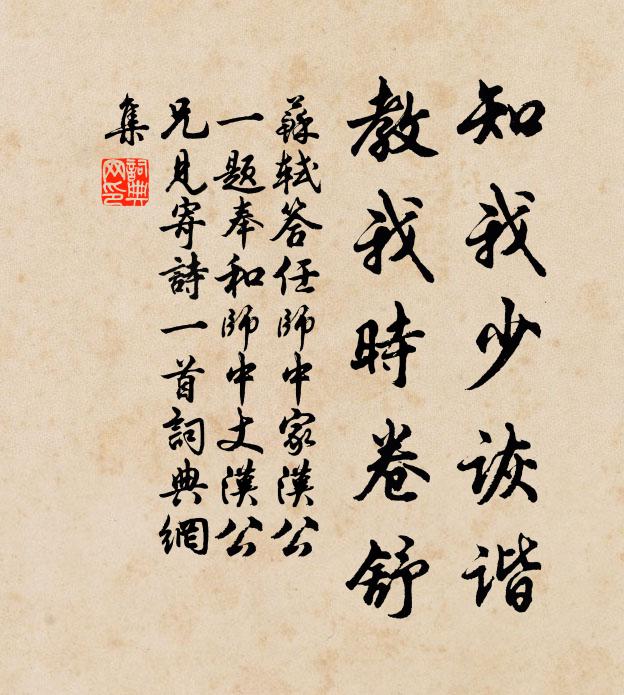 知我少诙谐
教我時卷舒
蘇軾答任師中家漢公
一题奉和師中丈漢公
兄見寄詩一首詞典網
集
詞典網印